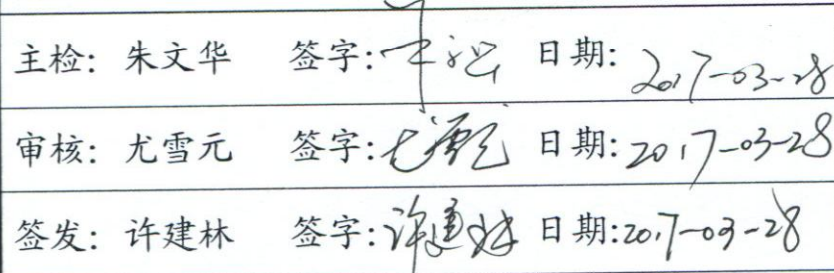 主检: 朱文华 签字: 日期: 2017-03-28
审核: 尤雪元 签字: 尤雪元 日期: 2017-03-28
签发: 许建林 签字: 许建林 日期: 2017-03-28